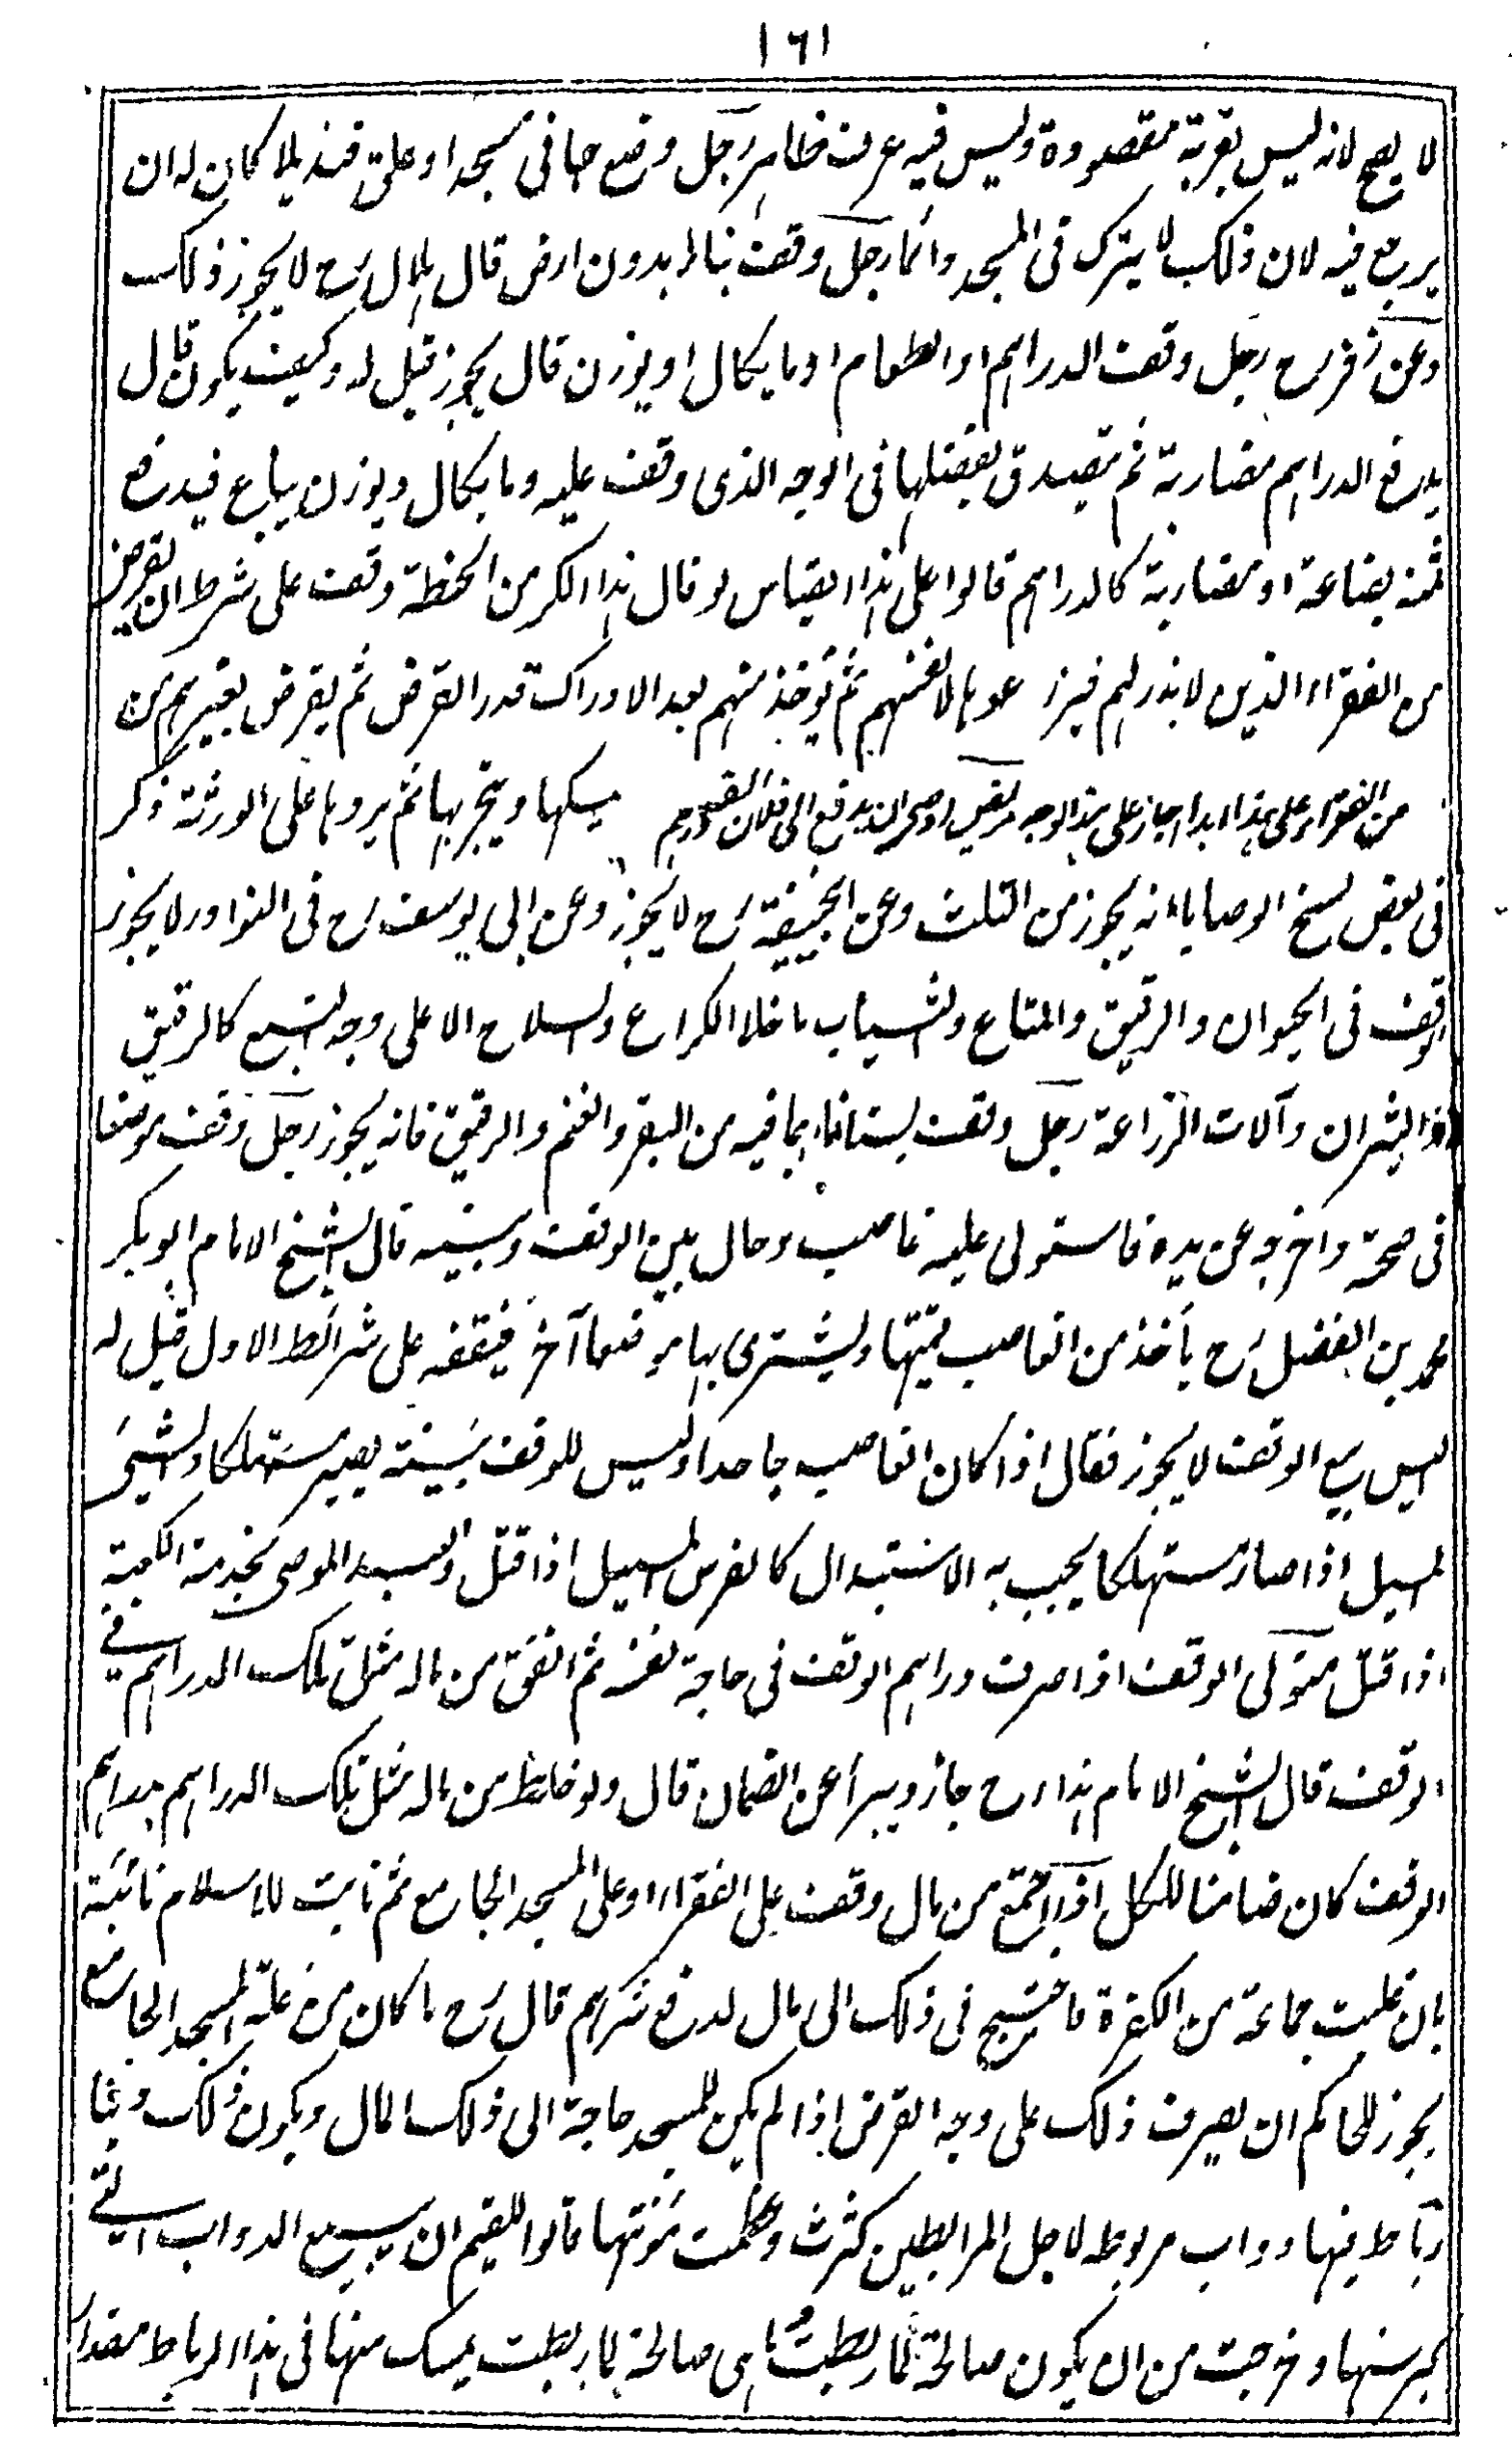 ١٦١
لا يصح لانه ليس بقربة مقصودة وليس فيه عرف ظاهر رجل وضع حبا فى مسجد او علق قنديلا كان له ان
يرجع فيه لان ذلك لا يترك فى المسجد دائما رجل وقف بناء بدون ارض قال هلال رح لا يجوز ذلك
وعن زفر رح رجل وقف الدراهم او الطعام او ما يكال او يوزن قال يجوز قيل له وكيف يكون قال
يدفع الدراهم مضاربة ثم يتصدق بفضلها فى الوجه الذى وقف عليه وما يكال ويوزن يباع فيدفع
ثمنه بضاعة او مضاربة كالدراهم قالوا على هذا القياس لو قال هذا الكر من الحنطة وقف على شرط ان يقرض
من الفقراء الذين لا بذر لهم فيزرعوها لانفسهم ثم تؤخذ منهم بعد الادراك قدر القرض ثم يقرض لغيرهم من
من الفقراء على هذا ابدا جاز على هذا الوجه مريض اوصى ان يدفع الى فلان الف درهم يمسكها ويتجر بها ثم يردها على الورثة ذكر
فى بعض نسخ الوصايا انه يجوز من الثلث وعن ابيحنيفة رح لا يجوز وعن ابى يوسف رح فى النوادر لا يجوز
الوقف فى الحيوان والرقيق والمتاع والثياب ما خلا الكراع والسلاح الا على وجه التبع كالرقيق
والثيران وآلات الزراعة رجل وقف بستانا بما فيه من البقر والغنم والرقيق فانه يجوز رجل وقف موضعا
فى صحته واخرجه عن يده فاستولى عليه غاصب وحال بين الوقف وبينه قال الشيخ الامام ابو بكر
محمد بن الفضل رح يأخذ من الغاصب قيمتها ويشترى بها موضعا آخر فيقفه على شرائط الاول قيل له
اليس بيع الوقف لا يجوز فقال اذا كان الغاصب جاحدا وليس للوقف بينة يصير مستهلكا والشئ
المسبل اذا صار مستهلكا يجب به الاستبدال كالفرس المسبل اذا قتل والعبد الموصى بخدمة الكعبة
اذا قتل متولى الوقف اذا صرف دراهم الوقف فى حاجة نفسه ثم انفق من ماله مثل تلك الدراهم في
الوقف قال الشيخ الامام هذا رح جاز ويبرأ عن الضمان قال ولو خلط من ماله مثل تلك الدراهم بدراهم
الوقف كان ضامنا للكل اذا اجتمع من مال وقف على الفقراء او على المسجد الجامع ثم نابت للاسلام نائبة
بان غلبت جماعة من الكفرة فاحتيج فى ذلك الى مال لدفع شرهم قال رح ما كان من غلة المسجد الجامع
يجوز للحاكم ان يصرف ذلك على وجه القرض اذا لم يكن للمسجد حاجة الى ذلك المال ويكون ذلك دينا
رباط فيها دواب مربوطة لاجل المرابطين كثرت وعظمت مؤنتها قالوا للقيم ان يبيع الدواب التي
كبر سنها وخرجت من ان يكون صالحة لما ربطت وما هى صالحة لما ربطت يمسك منها فى هذا الرباط مقدار